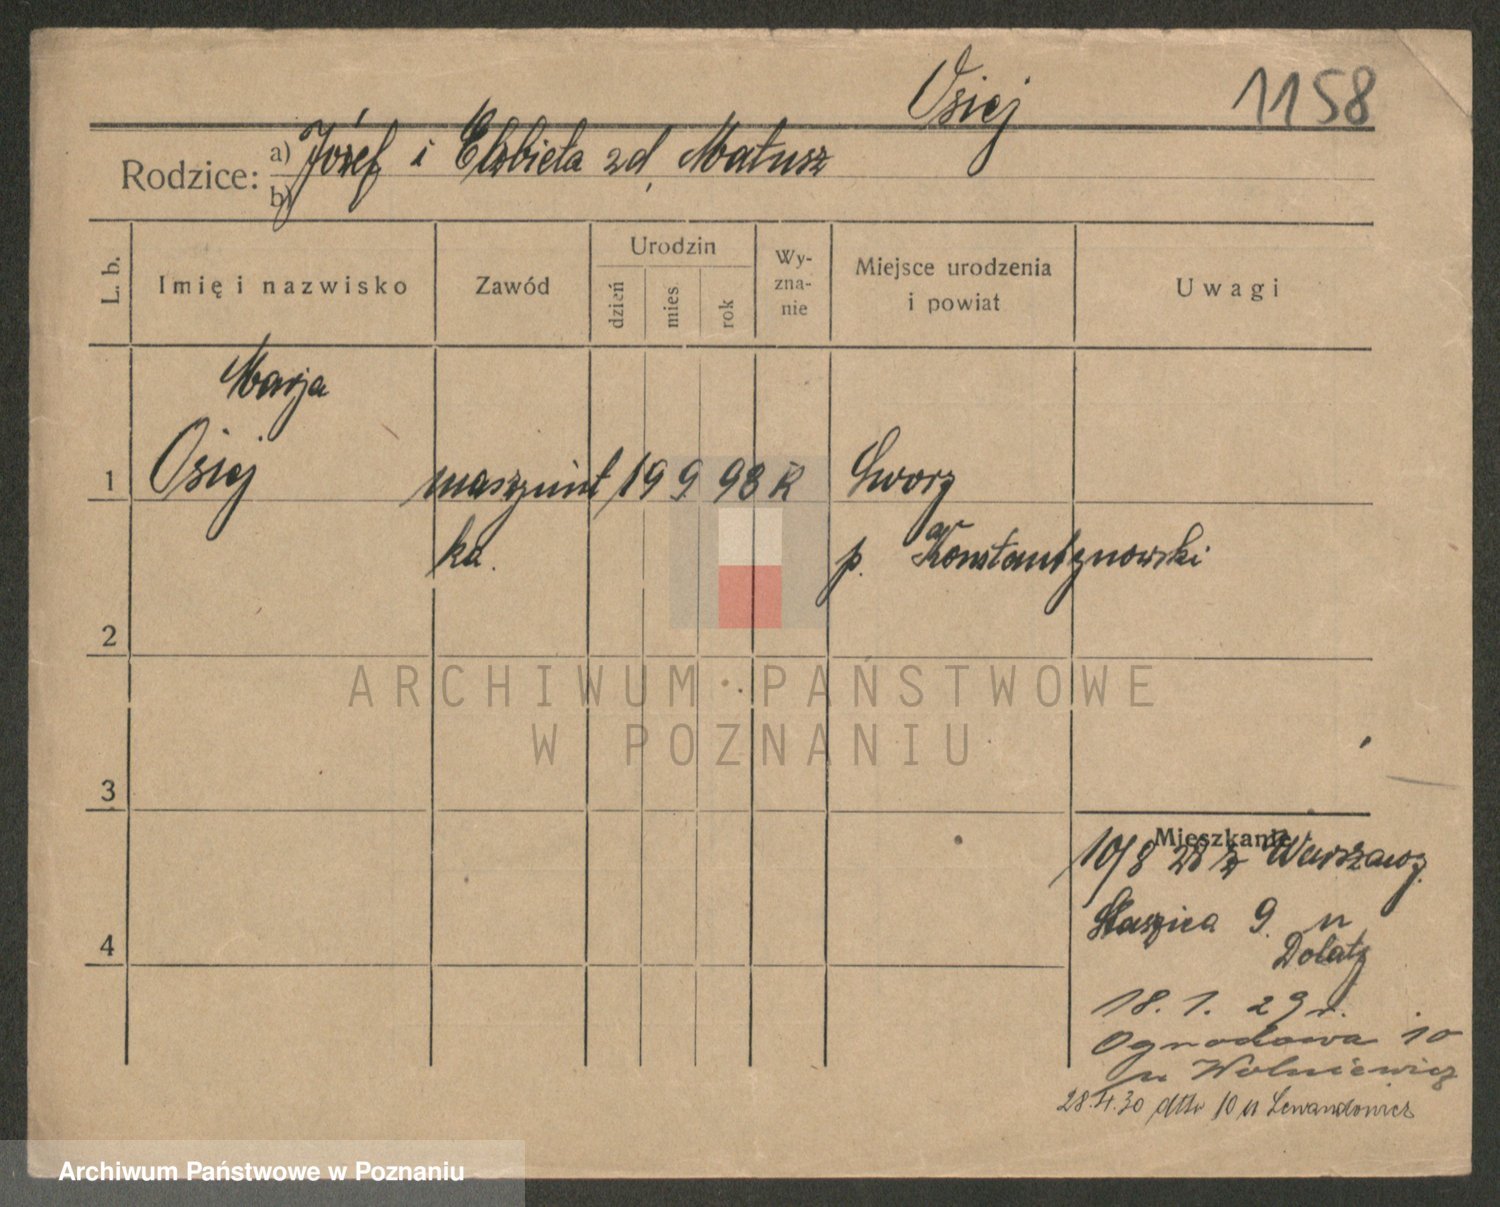 Osiej 1158
Rodzice: a) Józef i Elzbieta zd. Matusz
b)
L. b.
Imię i nazwisko
Zawód
Urodzin
dzień
mies
rok
Wy-
zna-
nie
Miejsce urodzenia
i powiat
Uwagi
Marja
1 Osiej maszynist 19 9 98 R Swory
ka. p. Konstantynowski
2
3
4
ARCHIWUM PAŃSTWOWE
W POZNANIU
Mieszkanie
10/8 28 z Warszawy.
Staszica 9. u
Dolaty
18. 1. 29 r.
Ogrodowa 10
u Wolniewicz
28.4.30 dtto 10 u Lewandowicz
Archiwum Państwowe w Poznaniu